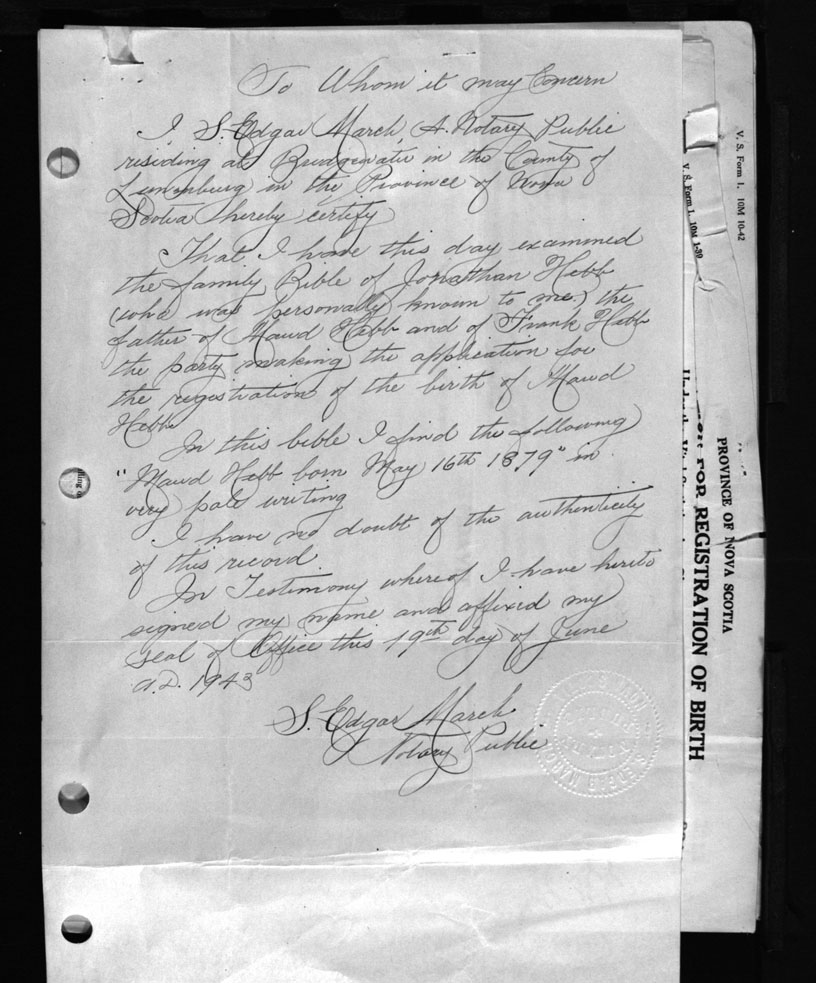 To Whom it may Concern
I S. Edgar March, A. Notary Public
residing at Bridgewater in the County of
Lunenburg in the Province of Nova
Scotia hereby certify
That I have this day examined
the family Bible of Jonathan Hebb
(who was personally known to me) the
father of Mawd Hebb and of Frank Hebb
the party making the application for
the registration of the birth of Mawd
Hebb
In this bible I find the following
"Mawd Hebb born May 16th 1879" in
very pale writing
I have no doubt of the authenticity
of this record.
In Testimony whereof I have hereto
signed my name and affixed my
seal of Office this 19th day of June
A.D. 1943
S. Edgar March
Notary Public
V. S. Form 1. 10M 10-42
V. S. Form 1. 10M 1-39
PROVINCE OF NOVA SCOTIA
FOR REGISTRATION OF BIRTH